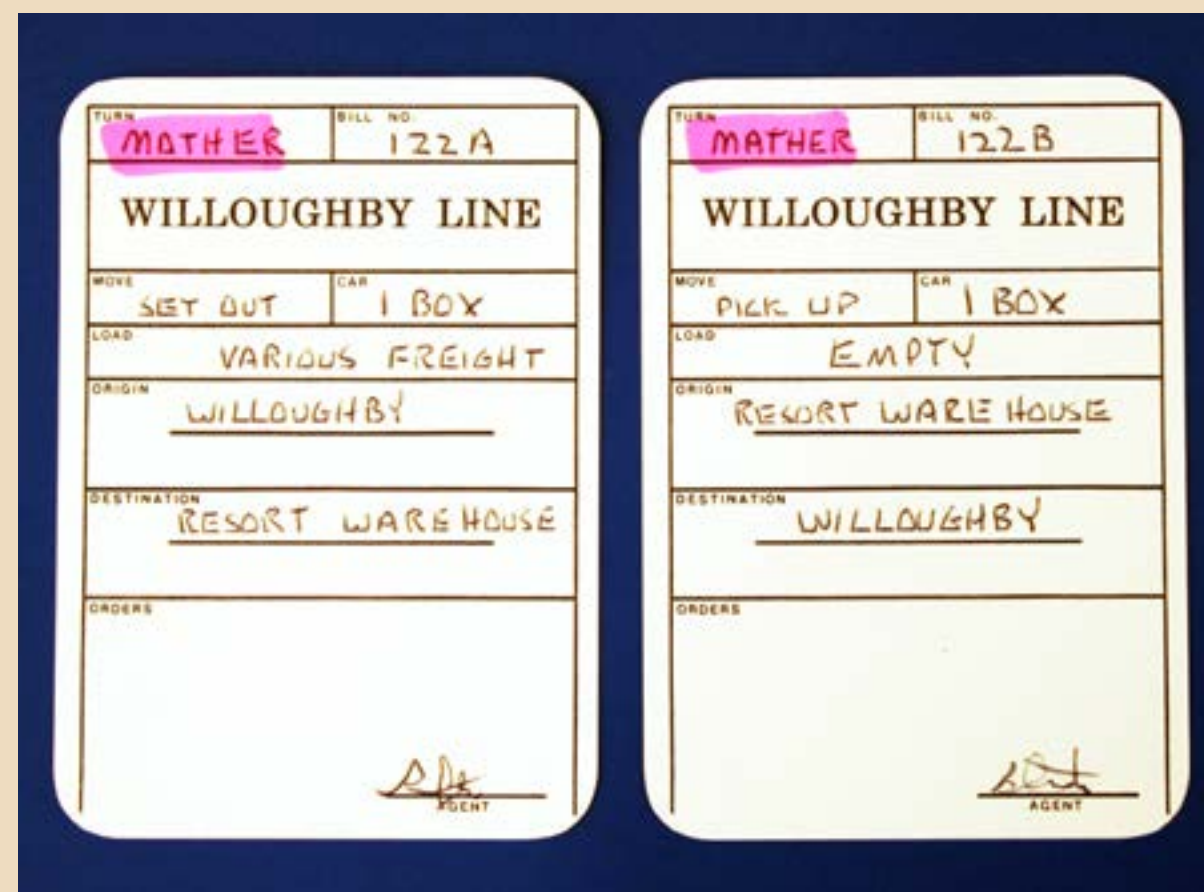 TURN
MATHER
BILL NO.
122A
WILLOUGHBY LINE
MOVE
SET OUT
CAR
1 BOX
LOAD
VARIOUS FREIGHT
ORIGIN
WILLOUGHBY
DESTINATION
RESORT WAREHOUSE
ORDERS
AGENT
TURN
MATHER
BILL NO.
122B
WILLOUGHBY LINE
MOVE
PICK UP
CAR
1 BOX
LOAD
EMPTY
ORIGIN
RESORT WARE HOUSE
DESTINATION
WILLOUGHBY
ORDERS
AGENT